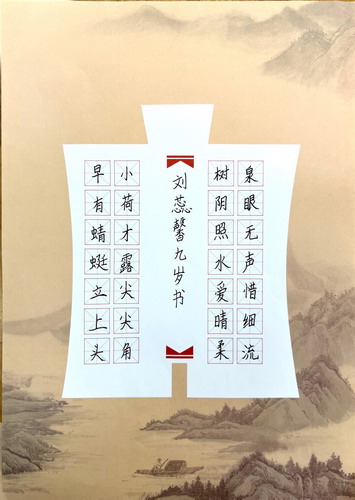 泉眼无声惜细流
树阴照水爱晴柔
刘蕊馨九岁书
小荷才露尖尖角
早有蜻蜓立上头